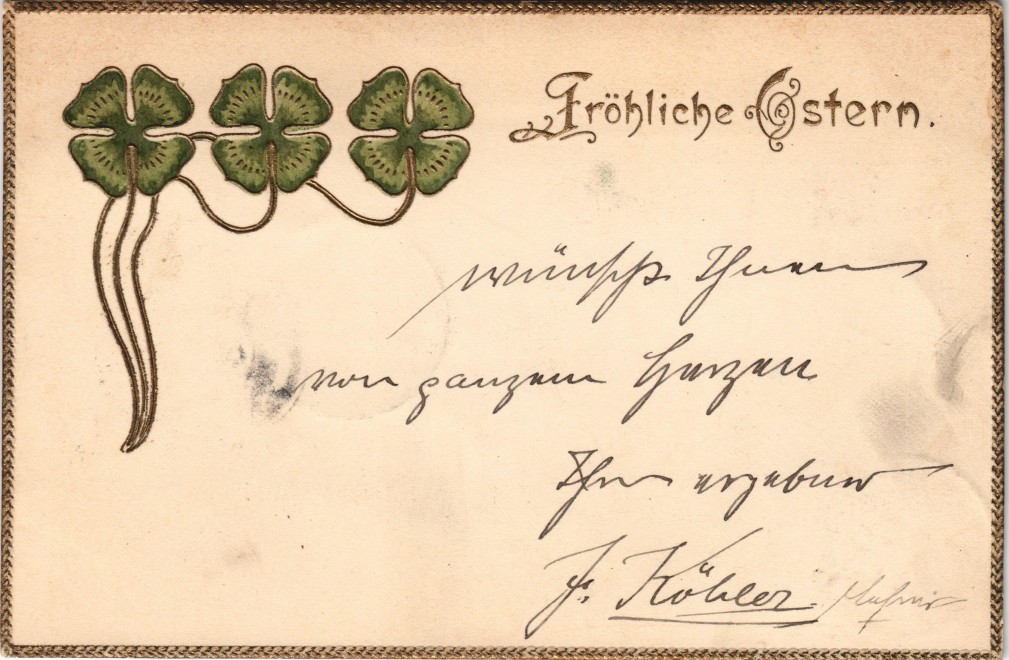 Fröhliche Ostern.
wünscht Ihnen
von ganzem Herzen
Ihr ergebener
J. Köhler